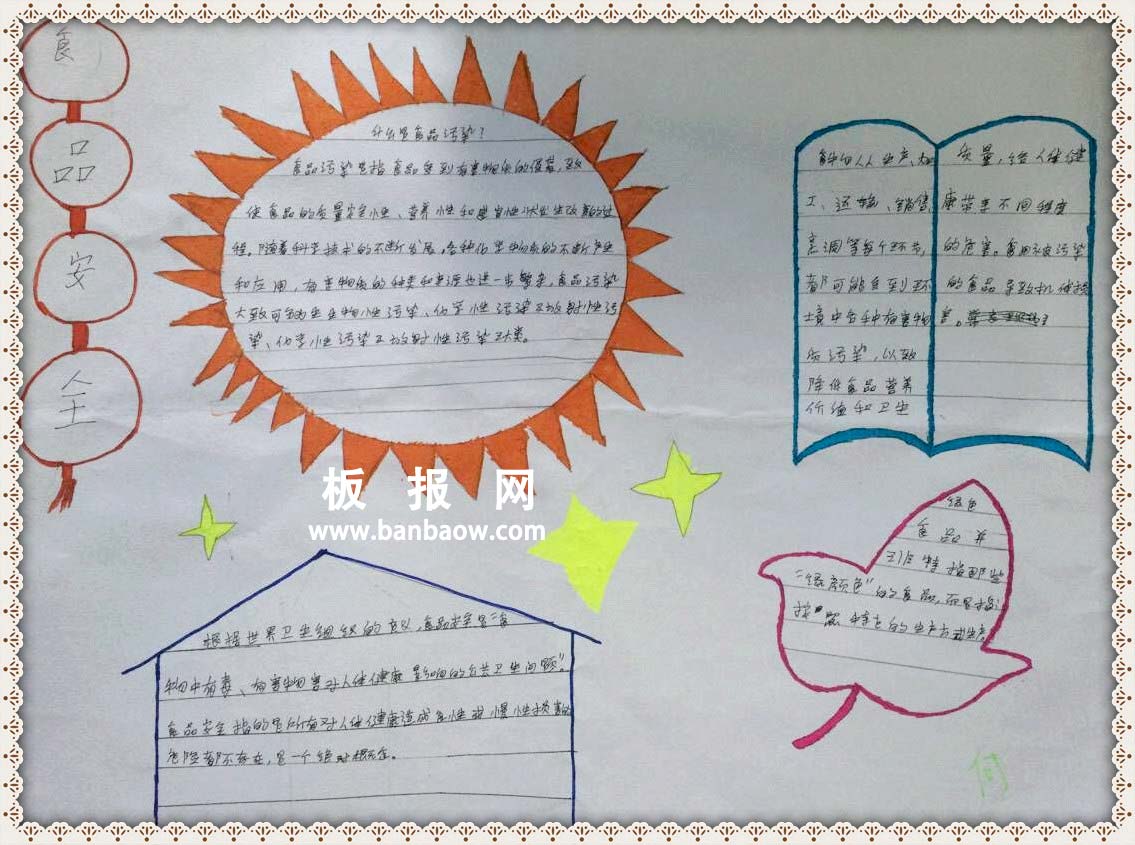 食
品
安
全
什么是食品污染?
食品污染是指食品受到有害物质的侵袭,致
使食品的质量安全性、营养性和感官性状发生改变的过
程。随着科学技术的不断发展,各种化学物质的不断产生
和应用,有害物质的种类和来源也进一步繁杂,食品污染
大致可分为生物性污染、化学性污染及放射性污
染、化学性污染及放射性污染环类。
食物从人生产、加
工、运输、销售、
烹调等每个环节,
都可能受到环
境中各种有害物
质污染,以致
降低食品营养
价值和卫生
质量,给人体健
康带来不同程度
的危害。食用被污染
的食品导致机体损
害。
板报网
www.banbaow.com
根据世界卫生组织的定义,食品安全是"食
物中有毒、有害物害对人体健康影响的公共卫生问题"。
食品安全指的是所有对人体健康造成急性或慢性损害的
危险都不存在,是一个绝对概念。
绿色
食品并
非特指那些
"绿颜色"的食品,而是指
按照特定的生产方式生产
何